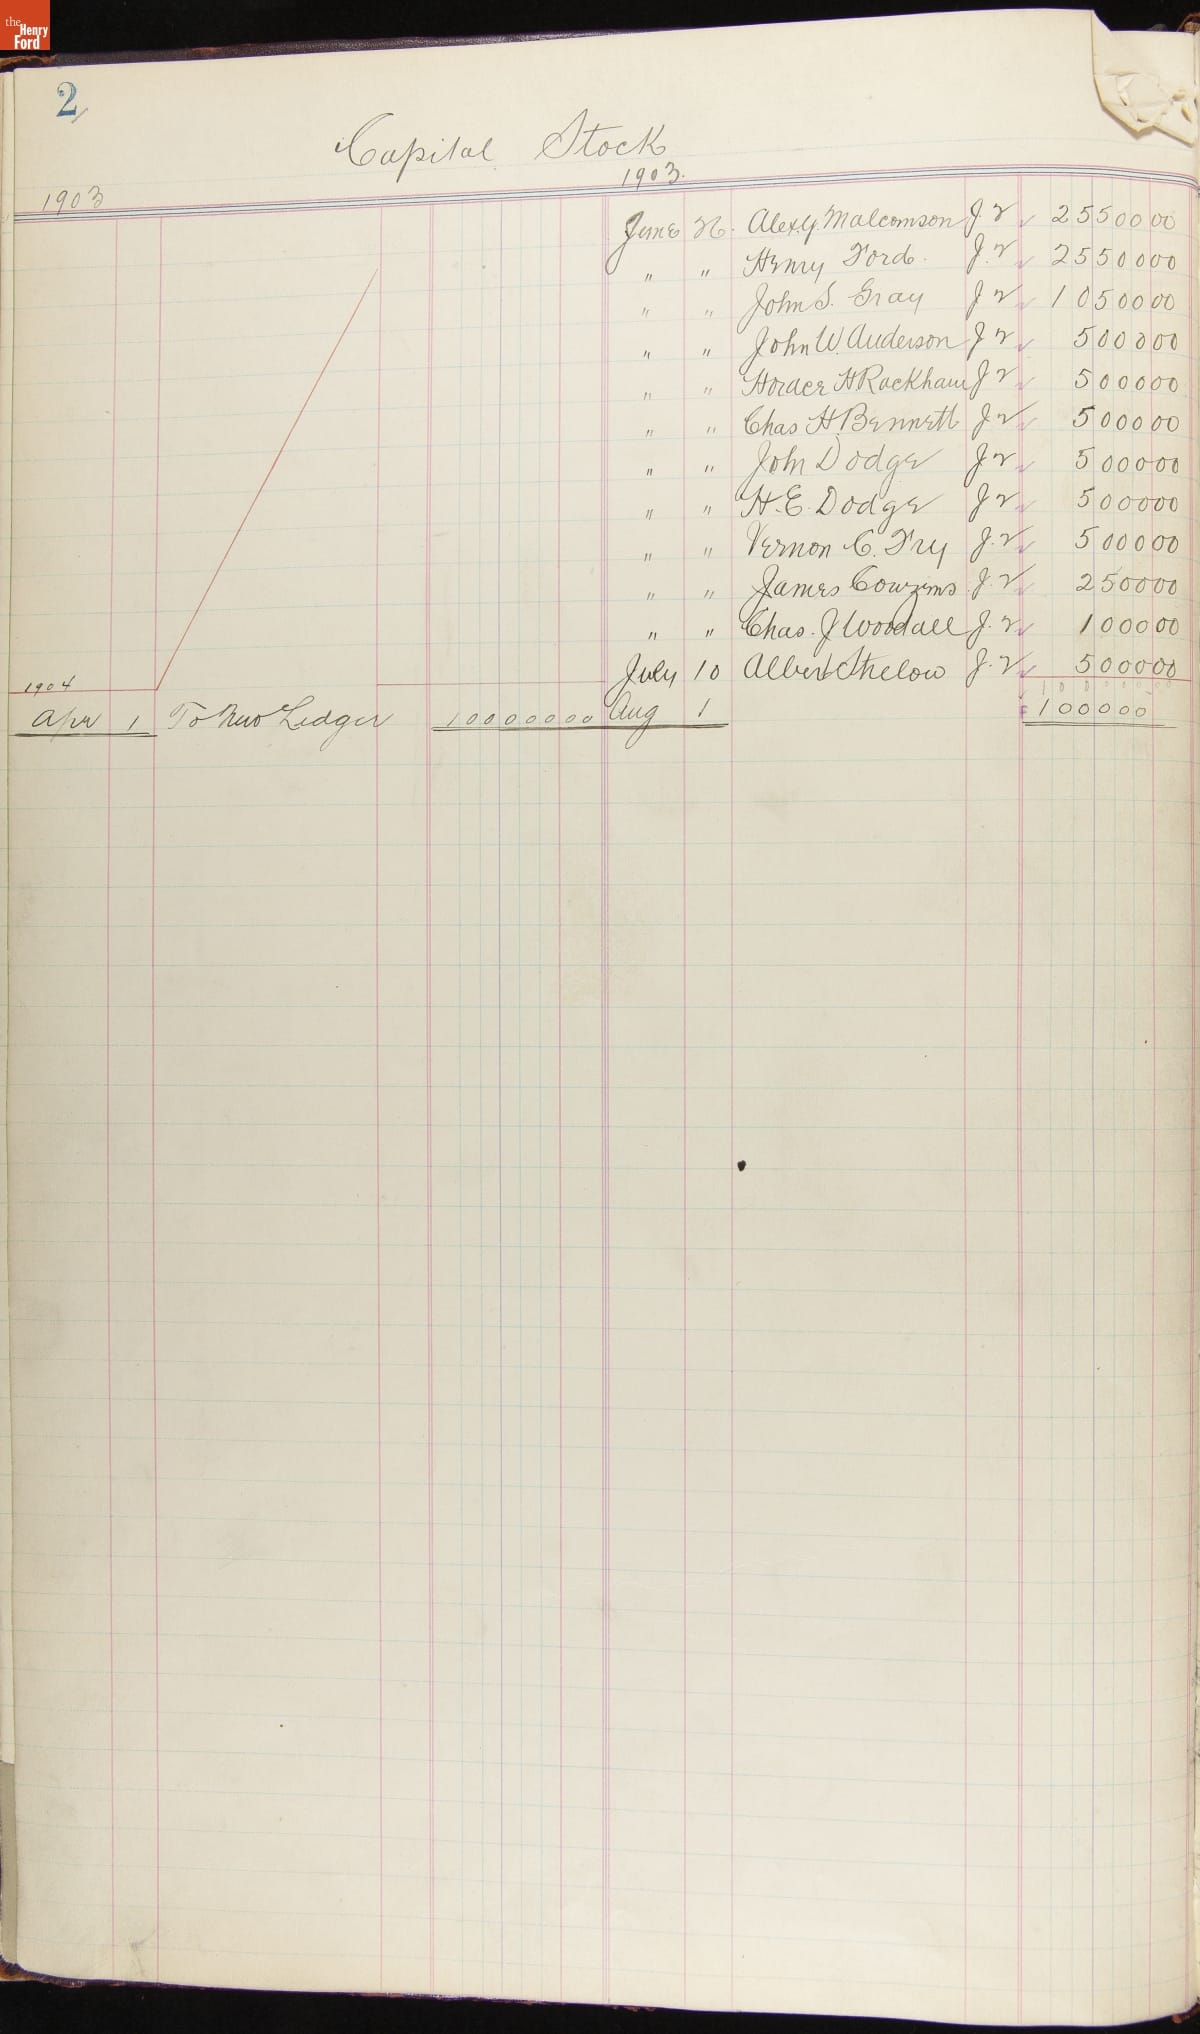 the Henry Ford
2
Capital Stock
1903
1903.
June 26. Alex. Y. Malcomson J 2 25500 00
" " Henry Ford. J. 2 25500 00
" " John S. Gray J 2 10500 00
" " John W. Anderson J 2 5000 00
" " Horace H Rackham J 2 5000 00
" " Chas H. Bennett J 2 5000 00
" " John Dodge J 2 5000 00
" " H. E. Dodge J 2 5000 00
" " Vernon C. Fry J. 2 5000 00
" " James Couzens J. 2 2500 00
" " Chas. J Woodall J. 2 1000 00
July 10 Albert Strelow J. 2 5000 00
1904
10000000
Apr 1 To New Ledger 100000 00 Aug 1 100000